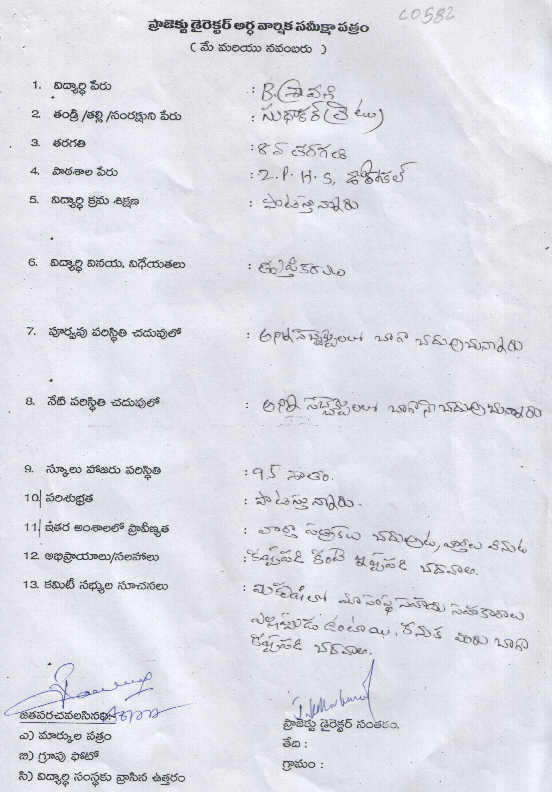 C0582
ప్రాజెక్టు డైరెక్టర్ అర్ధ వార్షిక సమీక్షా పత్రం
( మే మరియు నవంబరు )
1. విద్యార్థి పేరు : B. శ్రావణి
2. తండ్రి /తల్లి /సంరక్షుని పేరు : సుధాకర్ (లేటు)
3. తరగతి : 8వ తరగతి
4. పాఠశాల పేరు : Z.P.H.S,
5. విద్యార్థి క్రమ శిక్షణ : పాటిస్తున్నారు
6. విద్యార్థి వినయ, విధేయతలు : తృప్తికరము
7. పూర్వపు పరిస్థితి చదువులో : అన్ని సబ్జెక్ట్లలలో బాగా చదువుచున్నారు
8. నేటి పరిస్థితి చదువులో : అన్ని సబ్జెక్ట్లలలో బాగానే చదువుచున్నారు
9. స్కూలు హాజరు పరిస్థితి : 95 శాతం.
10. పరిశుభ్రత : పాటిస్తున్నారు.
11. ఇతర అంశాలలో ప్రావీణ్యత : వార్తా పత్రికలు చదువుట, వార్తలు వినుట
12. అభిప్రాయాలు/సలహాలు : కష్టపడి కంటే ఇష్టపడి చదవాలి.
13. కమిటీ సభ్యుల సూచనలు : మా సంస్థ సహాయ సహకారాలు
ఎల్లప్పుడు ఉంటాయి. కనుక మీరు బాగా
కష్టపడి చదవాలి.
జతపరచవలసినవి:
ఎ) మార్కుల పత్రం
బి) గ్రూపు ఫోటో
సి) విద్యార్థి సంస్థకు వ్రాసిన ఉత్తరం
ప్రాజెక్టు డైరెక్టర్ సంతకం.
తేది :
గ్రామం :